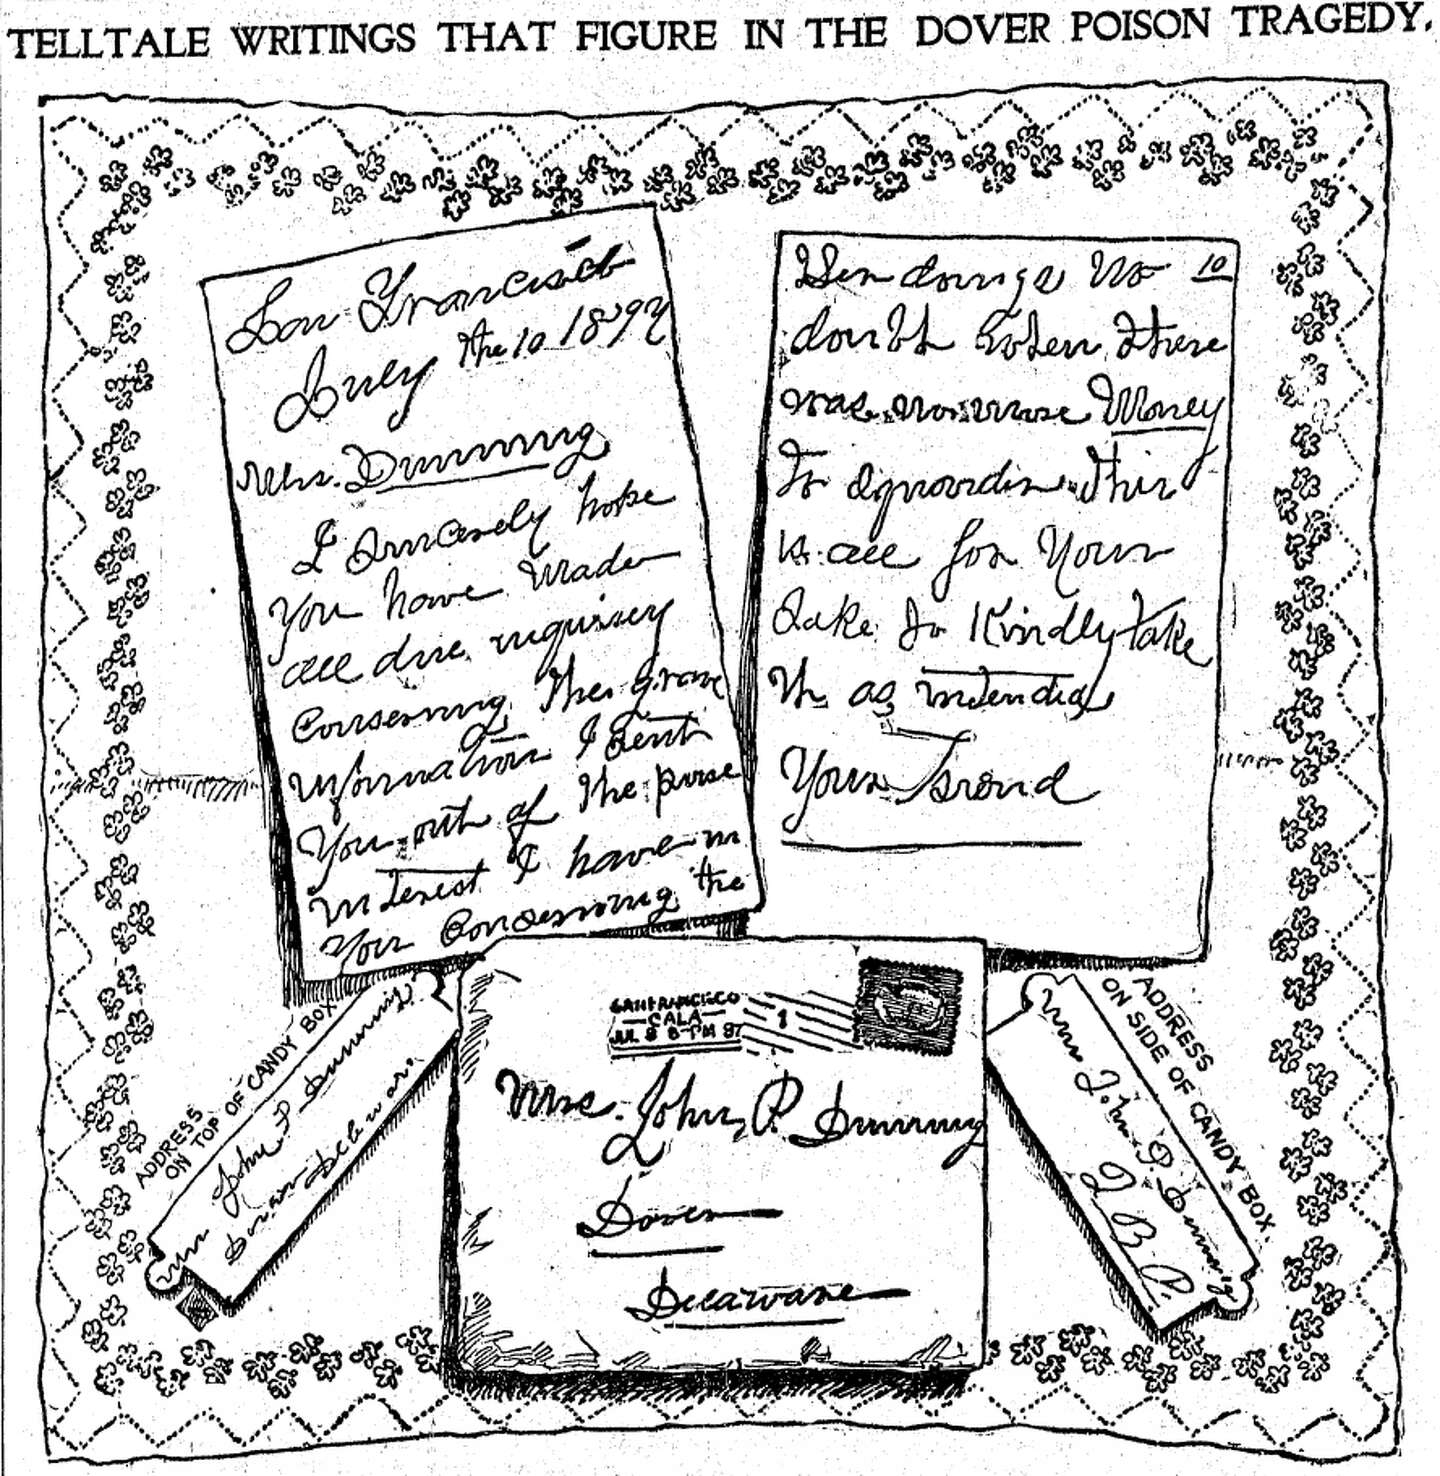 TELLTALE WRITINGS THAT FIGURE IN THE DOVER POISON TRAGEDY.
San Francisco
July the 10 1897
Mrs. Dunning
I Sincerely hope
You have Made
all due inquirey
Conserning the grave
information I Sent
You out of the pure
interest I have in
Your Conserning the
doings No 10
doubt when there
was Money
to this
is all for Your
Sake So Kindly take
it as intended
Your Friend
SAN FRANCISCO
CALA
JUL 8 8-PM 97
1
Mrs. John P. Dunning
Dover
Delaware
ADDRESS
ON TOP OF CANDY BOX
Mrs John P Dunning
Dover Delaware
ADDRESS
ON SIDE OF CANDY BOX.
Mrs John P. Dunning